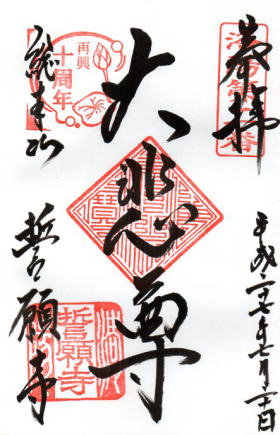 奉拝
平成二十七年七月二十日
大悲尊
総本山
誓願寺
再興
十周年
誓願寺